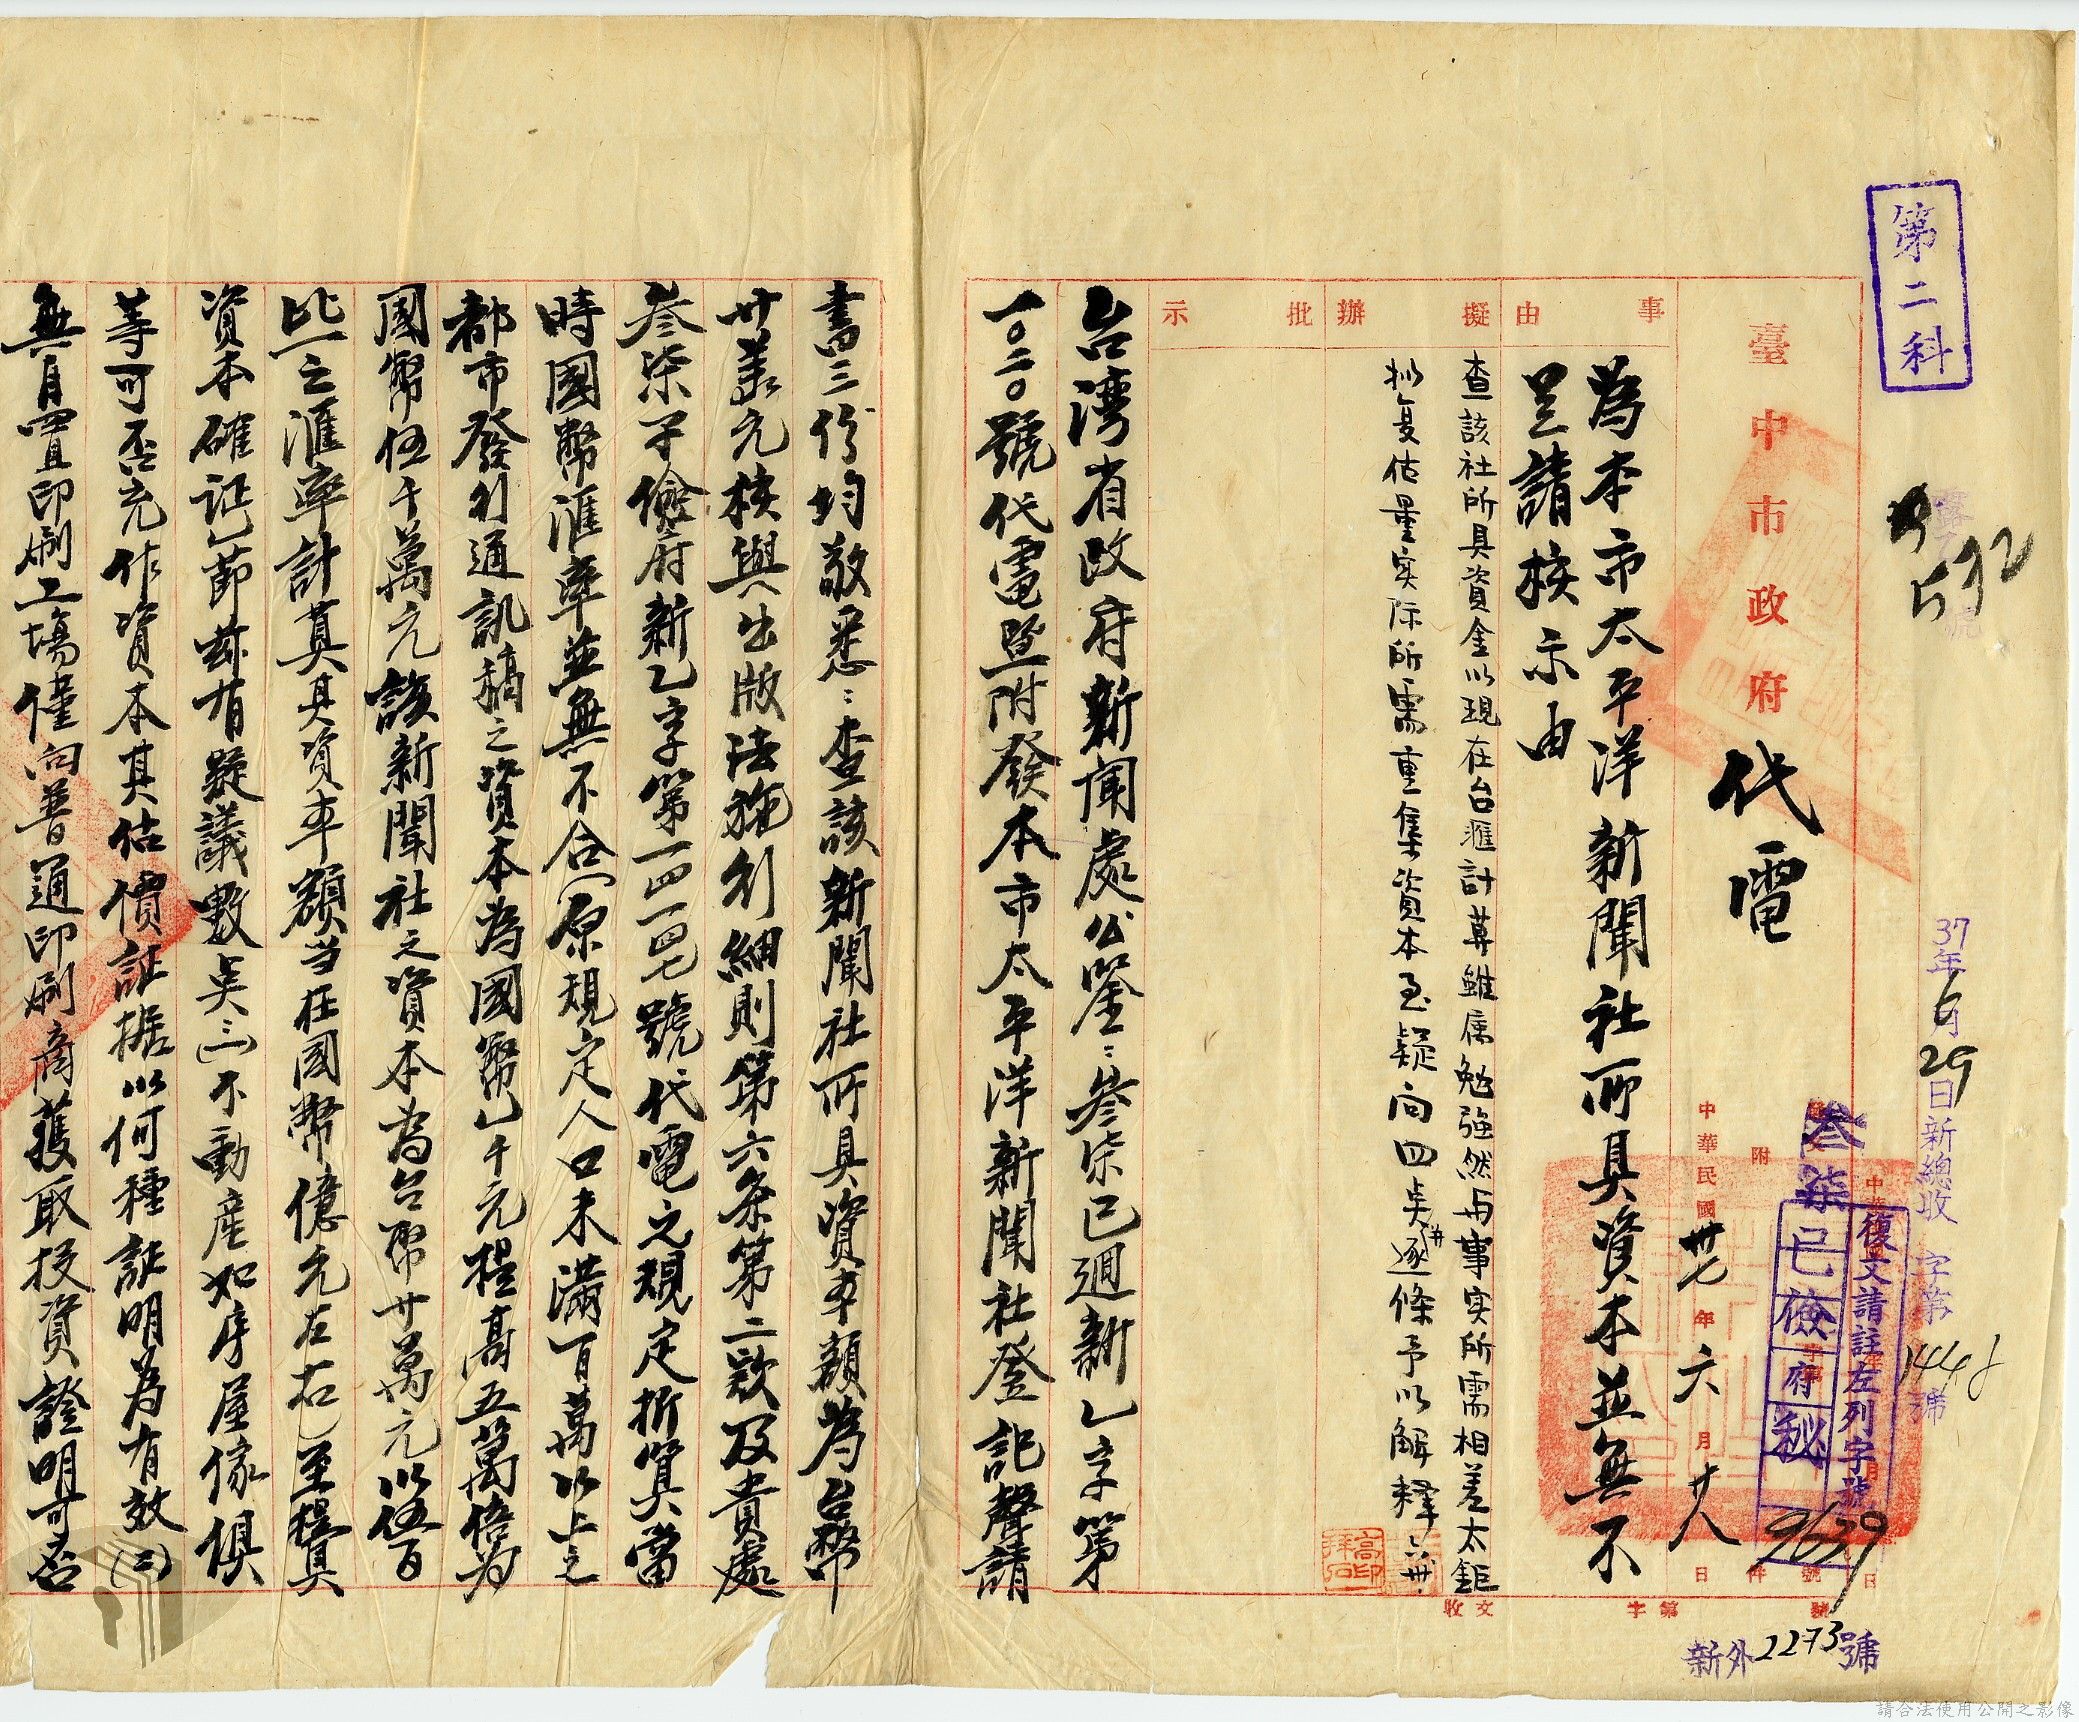 第二科
592
37年6月29日新總收 字第1448號
復文請註左列字號
叁柒已儉府秘
9639
新外2273號
臺中市政府代電
中華民國卅七年六月廿八日
附件
事由
為本市太平洋新聞社所具資本並無不
呈請核示由
擬辦
查該社所具資金以現在台滙計算雖屬勉強然与事实所需相差太鉅
拟复估量实际所需重集資本至疑问四点逐條予以解释 六卅
批示
收文 字第 號
台湾省政府新聞處公鑒：叁柒已迴新乙字第
一〇二〇號代電暨附發本市太平洋新聞社登記聲請
書三份均敬悉：查該新聞社所具資本額為台幣
廿萬元核與出版法施行細則第六条第二款及貴處
叁柒子儉府新乙字第一四一四七號代電之規定折算當
時國幣滙率並無不合（原規定人口未滿百萬以上之
都市發行通訊稿之資本為國幣乙千元提高五萬倍為
國幣伍千萬元該新聞社之資本為台幣廿萬元以伍百
比一之滙率計算其資本額当在國幣億元左右）至程其
資本確証乙節茲有疑議數点（一）不動產如房屋傢俱
等可否充作資本其估價証据以何種証明為有效（二）
無自置印刷工場僅向普通印刷商獲取投資證明可否
請合法使用公開之影像